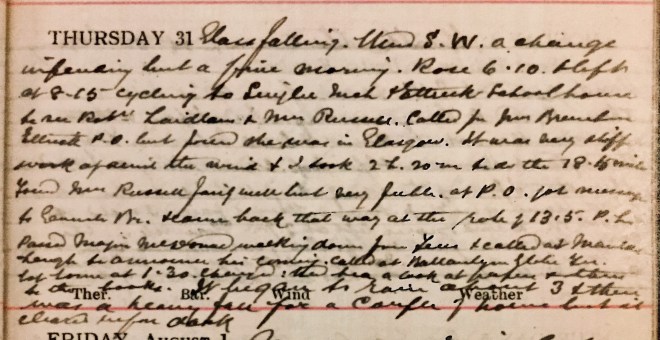 THURSDAY 31 Glass falling. Wind S.W. a change
impending but a fine morning. Rose 6.10. & left
at 8-15 cycling to & Ettrick Schoolhouse
to see Robt Laidlaw & Mrs Russell. Called for Mrs
Ettrick P.O. but found she was in Glasgow. It was very stiff
work against the wind & I took 2 h. 20 m to do the 18.5 mile
Found Mrs Russell fairly well but very at P.O. got message
to Br. & came back that way at the rate of 13.5. P.h
Passed Major walking down from & called at
to announce his coming. called at Ballantyne
Got home at 1.30. changed: then had a look at papers &
to do books. It began to rain about 3 & there
Ther. Bar. Wind Weather
was a heavy fall for a couple of hours but it
cleared before dark
FRIDAY, August 1